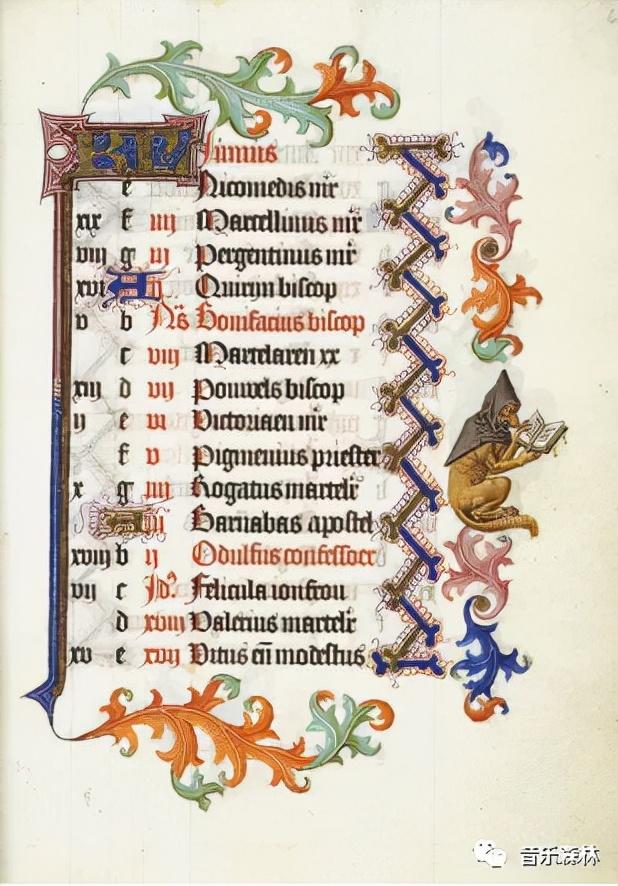 KL Junius
e Nicomedis mr̄
xix f iiij Marcellinus mr̄
viij g iij Pergentinus mr̄
xvi A ij Quirijn biscop
v b Nōs Bonifacius biscop
c viij Martelaren xx
xiij d vij Pouwels biscop
ij e vi Victoriaen mr̄
f v Pigmenius priester
x g iiij Rogatus martelr̄
A iij Barnabas apostel
xviij b ij Odulfus confessoer
vij c Id' Felicula ioncfrou
d xviij Valerius martelr̄
xv e xvij Vitus eñ modestus
音乐森林